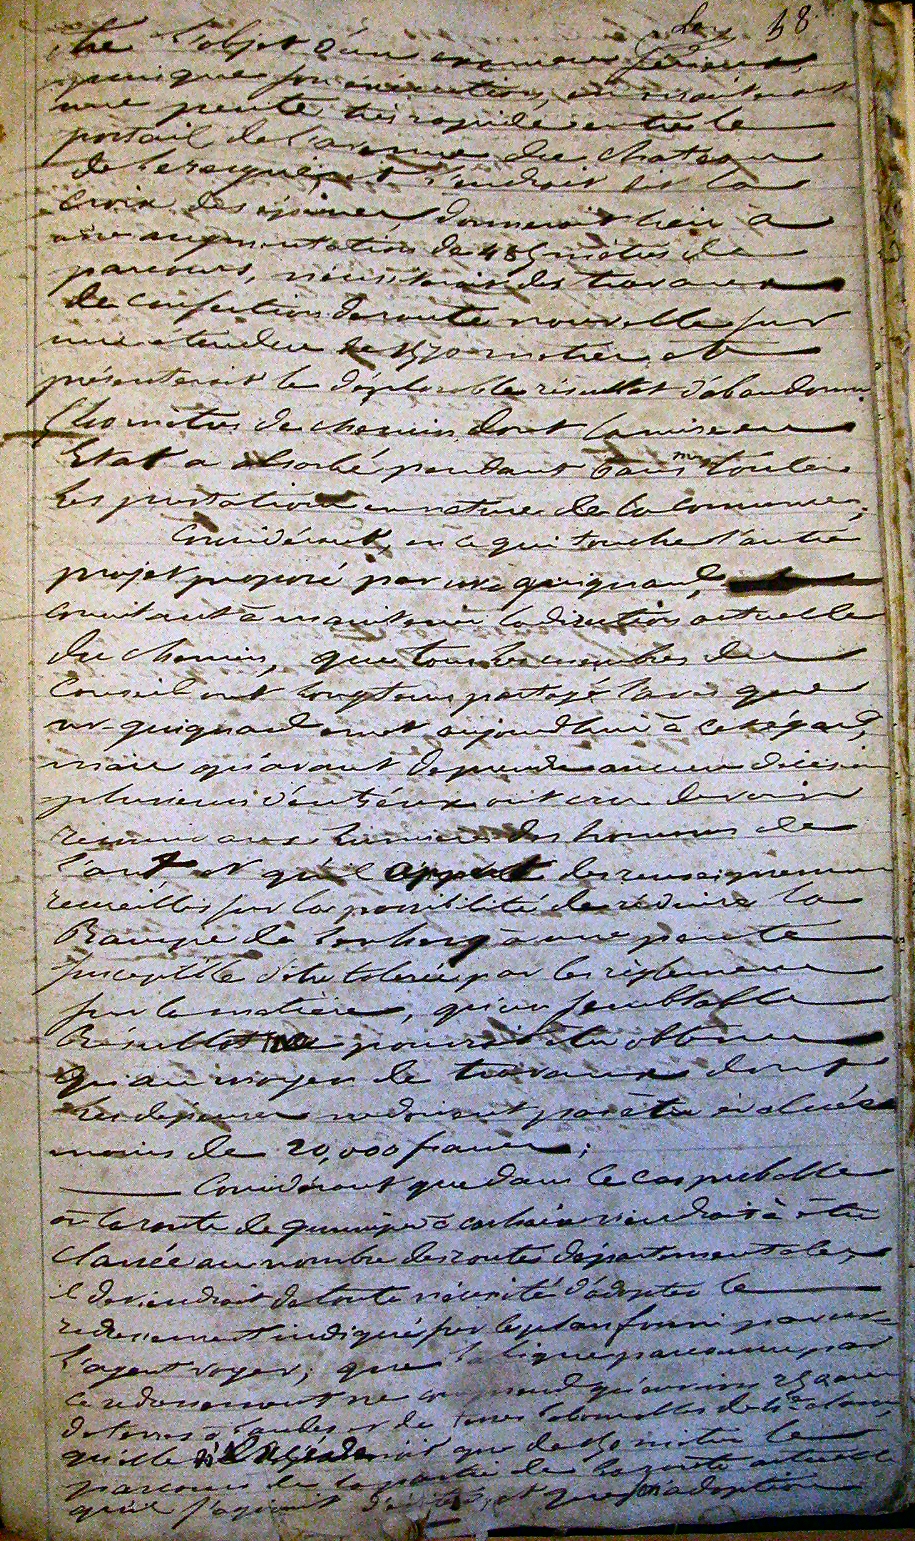 48
être l'objet d'un examen sérieux,
puisque son exécution, en créant
une pente très rapide entre le
portail de l'avenue du chateau
de et l'endroit dit la
Croix des épines, donnerait lieu à
une augmentation de 485 mètres de
parcours, nécessiterait des travaux
de confection de route nouvelle sur
une étendue de mètres et
présenterait le déplorable résultat d'abandonner
mètres de chemin dont la mise en
Etat a absorbé pendant 6 ans toutes
les prestations en nature de la commune;
Considérant, en ce qui touche l'autre
projet proposé par mr quiquand,
consistant à maintenir la direction actuelle
du chemin, que tous les membres du
Conseil ont longtems partagé l'avis que
mr quiquand émet aujourd'hui à cet égard,
mais qu'avant de prendre aucune décision
plusieurs d'entr'eux ont cru devoir
recourir aux lumières des hommes de
l'art et qu'il appert des renseignemens
recueillis sur la possibilité de réduire la
Rampe de à une pente
susceptible d'être tolérée par les règlemens
sur la matière, qu'un semblable
Résultat ne pourrait être obtenu
qu'au moyen de travaux dont
les dépenses ne doivent pas être évaluées
moins de 20,000 francs;
Considérant que dans le cas probable
où la route de quimper à carhaix viendrait à être
classée au nombre des routes départementales,
il deviendrait de toute nécessité d'adopter le
redressement indiqué sur le plan fourni par mr
l'agent voyer; que la ligne parcourue par
ce redressement ne comprend qu'environ 25 ares
de terres à landes et de terres labourables de classe,
qu'elle que de 50 mètres le
parcours de la partie de la route actuelle
qu'il s'agirait d'éviter, et que son adoption